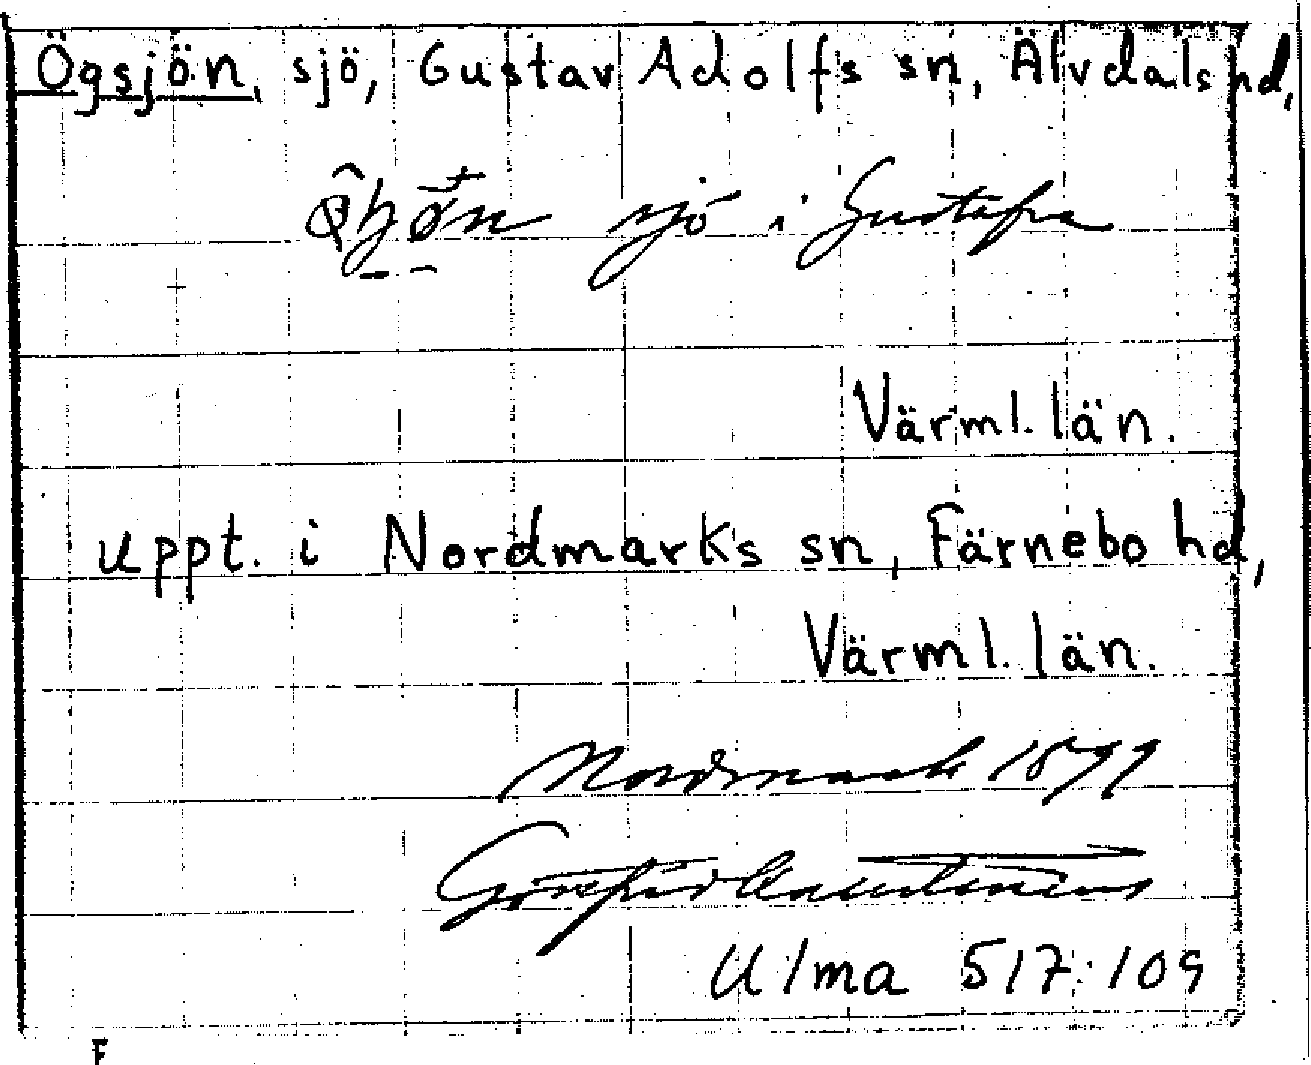 Ögsjön, sjö, Gustav Adolfs sn, Älvdals hd,
sjö i Gustafva
Värml. län.
uppt. i Nordmarks sn, Färnebo hd,
Värml. län.
Nordmark 1899
Ulma 517:109
F